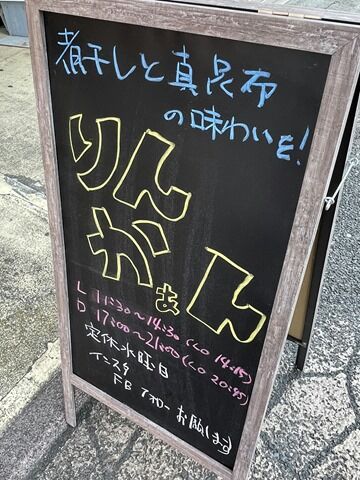 煮干しと真昆布
の味わいを!
りん
かぁん
L 11:30～14:30(LO 14:15)
D 17:00～21:00(LO 20:45)
定休水曜日
インスタ
FB フォローお願します